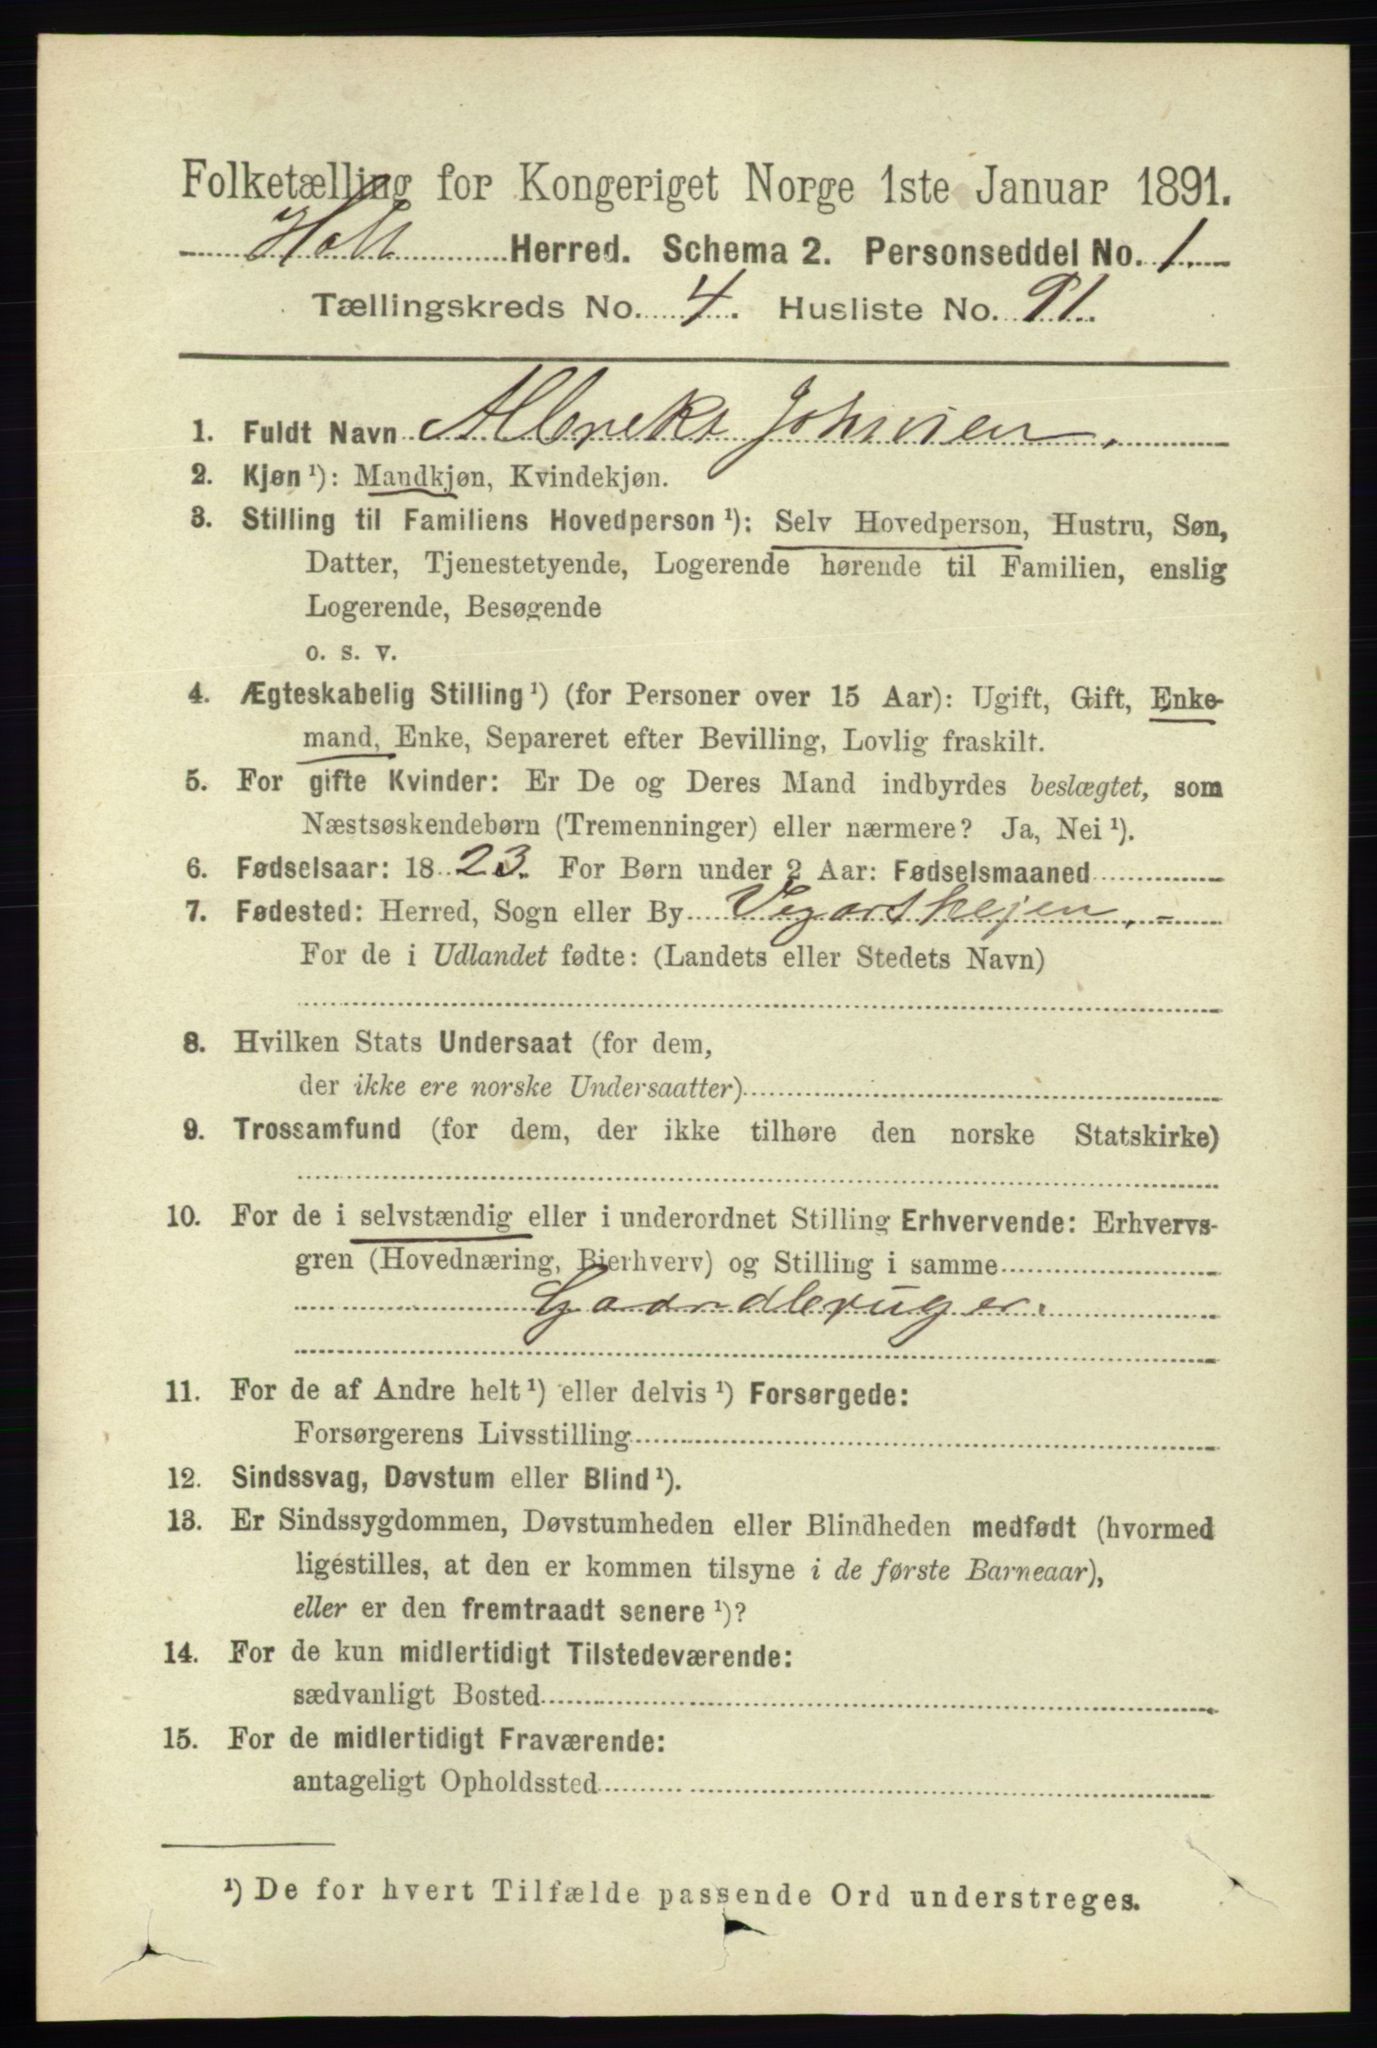 Folketælling for Kongeriget Norge 1ste Januar 1891.
Holt Herred. Schema 2. Personseddel No. 1.
Tællingskreds No. 4. Husliste No. 91.
1. Fuldt Navn Albrekt Johnsen,
2. Kjøn ¹): Mandkjøn, Kvindekjøn.
3. Stilling til Familiens Hovedperson ¹): Selv Hovedperson, Hustru, Søn,
Datter, Tjenestetyende, Logerende hørende til Familien, enslig
Logerende, Besøgende
o. s. v.
4. Ægteskabelig Stilling ¹) (for Personer over 15 Aar): Ugift, Gift, Enke-
mand, Enke, Separeret efter Bevilling, Lovlig fraskilt.
5. For gifte Kvinder: Er De og Deres Mand indbyrdes beslægtet, som
Næstsøskendebørn (Tremenninger) eller nærmere? Ja, Nei ¹).
6. Fødselsaar: 18 23. For Børn under 2 Aar: Fødselsmaaned
7. Fødested: Herred, Sogn eller By Vegarshejen, -
For de i Udlandet fødte: (Landets eller Stedets Navn)
8. Hvilken Stats Undersaat (for dem,
der ikke ere norske Undersaatter)
9. Trossamfund (for dem, der ikke tilhøre den norske Statskirke)
10. For de i selvstændig eller i underordnet Stilling Erhvervende: Erhvervs-
gren (Hovednæring, Bierhverv) og Stilling i samme
Gaardbruger.
11. For de af Andre helt ¹) eller delvis ¹) Forsørgede:
Forsørgerens Livsstilling
12. Sindssvag, Døvstum eller Blind ¹).
13. Er Sindssygdommen, Døvstumheden eller Blindheden medfødt (hvormed
ligestilles, at den er kommen tilsyne i de første Barneaar),
eller er den fremtraadt senere ¹)?
14. For de kun midlertidigt Tilstedeværende:
sædvanligt Bosted
15. For de midlertidigt Fraværende:
antageligt Opholdssted
¹) De for hvert Tilfælde passende Ord understreges.